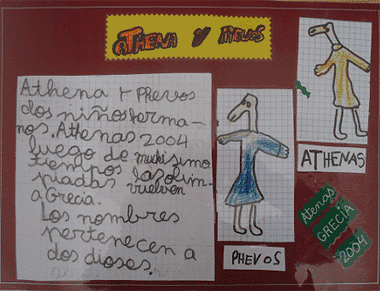 ATHENA Y PHEVOS
Athena y Phevos
dos niños herma-
nos. Athenas 2004
luego de muchisimo
tiempos las olim-
piadas vuelven
a Grecia.
Los nombres
pertenecen a
dos dioses.
PHEVOS
ATHENAS
Atenas
GRECIA
2004